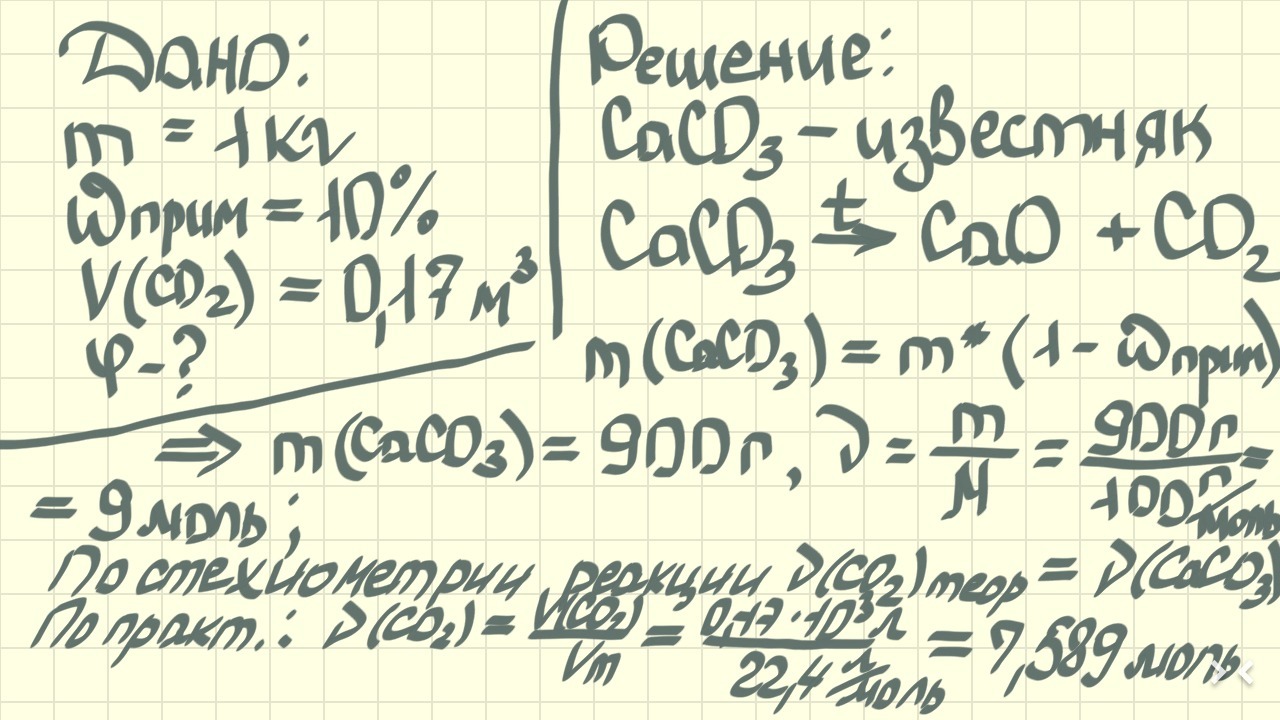 Дано:
m = 1 кг
ω прим = 10%
V(CO₂) = 0,17 м³
φ - ?
Решение:
CaCO₃ - известняк
CaCO₃ →ᵗ CaO + CO₂
m(CaCO₃) = m * (1 - ω прим)
⇒ m(CaCO₃) = 900 г, ν = m/M = 900 г / 100 г/моль =
= 9 моль;
По стехиометрии реакции ν(CO₂)теор = ν(CaCO₃)
По практ.: ν(CO₂) = V(CO₂)/Vm = 0,17·10³ л / 22,4 л/моль = 7,589 моль